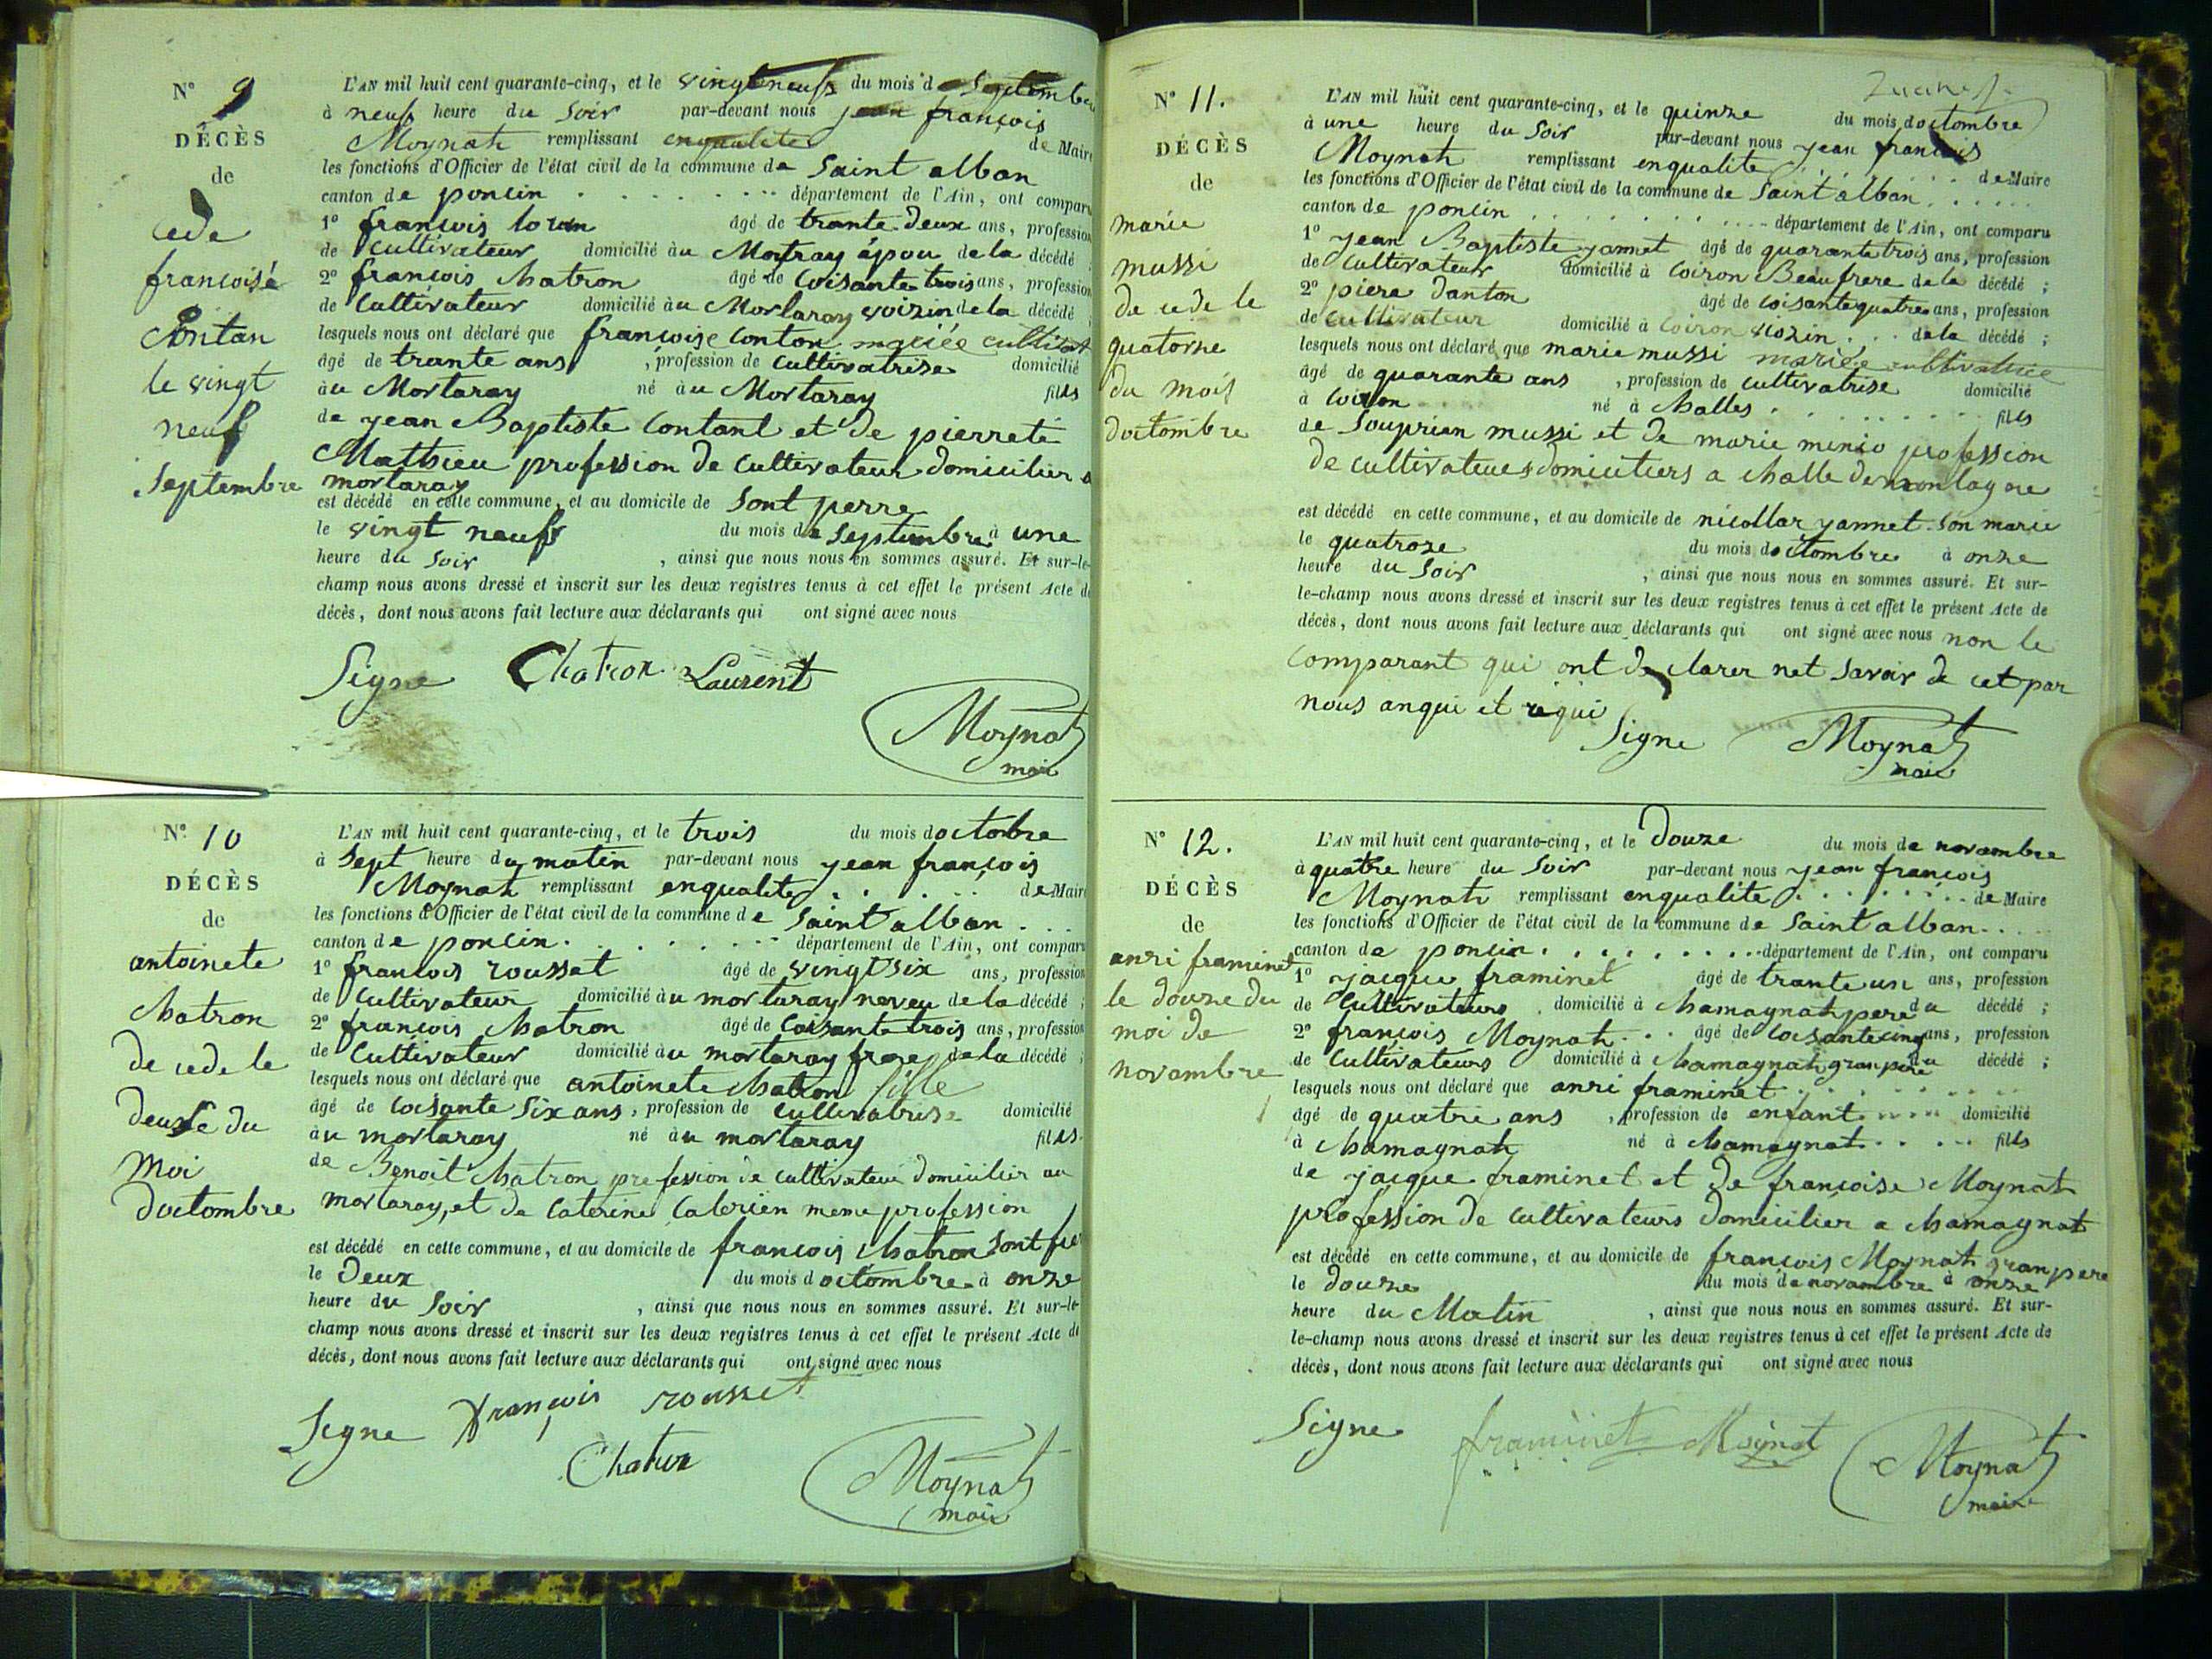 N° 9
DÉCÈS
de
cede
francoisé
Contan
le vingt
neuf
Septembre
L'AN mil huit cent quarante-cinq, et le vingt neufs du mois de Septembre
à neufs heure du Soir par-devant nous jean françois
Moynat remplissant enqualite de Maire
les fonctions d'Officier de l'état civil de la commune de Saint alban
canton de poncin département de l'Ain, ont comparu
1° francois loran âgé de trante deux ans, profession
de Cultivateur domicilié àu Mortaray épou de la décédé ;
2° francois Chatron âgé de Coisante trois ans, profession
de Cultivateur domicilié àu Mortaray voizin de la décédé ;
lesquels nous ont déclaré que francoise Conton mariée
âgé de trante ans , profession de cultivatrise domicilié
àu Mortaray né àu Mortaray filles
de jean Baptiste Contant et de pierrete
Mathieu profession de cultivateur domicilier a
mortaray
est décédé en cette commune, et au domicile de Sont perre
le vingt neufs du mois de Septembre à une
heure du Soir , ainsi que nous nous en sommes assuré. Et sur-le-
champ nous avons dressé et inscrit sur les deux registres tenus à cet effet le présent Acte de
décès, dont nous avons fait lecture aux déclarants qui ont signé avec nous
Signe Chatron Laurent
Moynat
mair
N° 10
DÉCÈS
de
antoinete
Chatron
de cede le
deuxe du
Moi
doctombre
L'AN mil huit cent quarante-cinq, et le trois du mois doctobre
à Sept heure du matin par-devant nous jean françois
Moynat remplissant enqualite de Maire
les fonctions d'Officier de l'état civil de la commune de Saint alban
canton de poncin département de l'Ain, ont comparu
1° francois roussat âgé de vingt six ans, profession
de Cultivateur domicilié àu mortaray neveu de la décédé ;
2° francois Chatron âgé de Coisante trois ans, profession
de Cultivateur domicilié àu mortaray frere de la décédé ;
lesquels nous ont déclaré que antoinete Chatron fille
âgé de coisante Six ans , profession de cultivatrise domicilié
àu mortaray né àu mortaray filles
de Benoit Chatron profession de cultivateur domicilier au
mortaray, et de Caterine Calerien meme profession
est décédé en cette commune, et au domicile de francois Chatron Sont
le deux du mois doctombre à onze
heure du Soir , ainsi que nous nous en sommes assuré. Et sur-le-
champ nous avons dressé et inscrit sur les deux registres tenus à cet effet le présent Acte de
décès, dont nous avons fait lecture aux déclarants qui ont signé avec nous
Signe françois rousset
Chatron
Moynat
mair
N° 11.
DÉCÈS
de
marie
mussi
de cede le
quatorze
du mois
doctombre
L'AN mil huit cent quarante-cinq, et le quinze du mois doctombre
à une heure du Soir par-devant nous jean francois
Moynat remplissant enqualite de Maire
les fonctions d'Officier de l'état civil de la commune de Saint alban
canton de poncin département de l'Ain, ont comparu
1° jean Baptiste jannet âgé de quarante trois ans, profession
de Cultivateur domicilié à Coiron Beaufrere de la décédé ;
2° piere danton âgé de coisante quatre ans, profession
de Cultivateur domicilié à Coiron vozin de la décédé ;
lesquels nous ont déclaré que marie mussi mariée cultivatrice
âgé de quarante ans , profession de cultivatrise domicilié
à Coiron né à Challes filles
de Souprian mussi et de marie profession
de cultivateurs domicitiers a Challe de montagne
est décédé en cette commune, et au domicile de nicollar jannet. Son marie
le quatroze du mois doctombre à onze
heure du Soir , ainsi que nous nous en sommes assuré. Et sur-
le-champ nous avons dressé et inscrit sur les deux registres tenus à cet effet le présent Acte de
décès, dont nous avons fait lecture aux déclarants qui ont signé avec nous non le
Comparant qui ont declarer net Savoir de cet par
nous anqui et requi
Signe Moynat
mair
N° 12.
DÉCÈS
de
anri framinet
le douze du
moi de
novambre
L'AN mil huit cent quarante-cinq, et le Douze du mois de novambre
à quatre heure du Soir par-devant nous jean françois
Moynat remplissant enqualite de Maire
les fonctions d'Officier de l'état civil de la commune de Saint alban
canton de poncin département de l'Ain, ont comparu
1° jacque framinet âgé de trante un ans, profession
de Cultivateurs domicilié à Chamagnat pere du décédé ;
2° françois Moynat âgé de Coisante cinq ans, profession
de Cultivateurs domicilié à Chamagnat gran pere du décédé ;
lesquels nous ont déclaré que anri framinet
âgé de quatri ans , profession de enfant domicilié
à Chamagnat né à Chamagnat fils
de jacque framinet et de françoise Moynat
profession de Cultivateurs domicilier a Chamagnat
est décédé en cette commune, et au domicile de françois Moynat gran pere
le douze du mois de novambre à onze
heure du Matin , ainsi que nous nous en sommes assuré. Et sur-
le-champ nous avons dressé et inscrit sur les deux registres tenus à cet effet le présent Acte de
décès, dont nous avons fait lecture aux déclarants qui ont signé avec nous
Signe framinet Moinat Moynat
maire